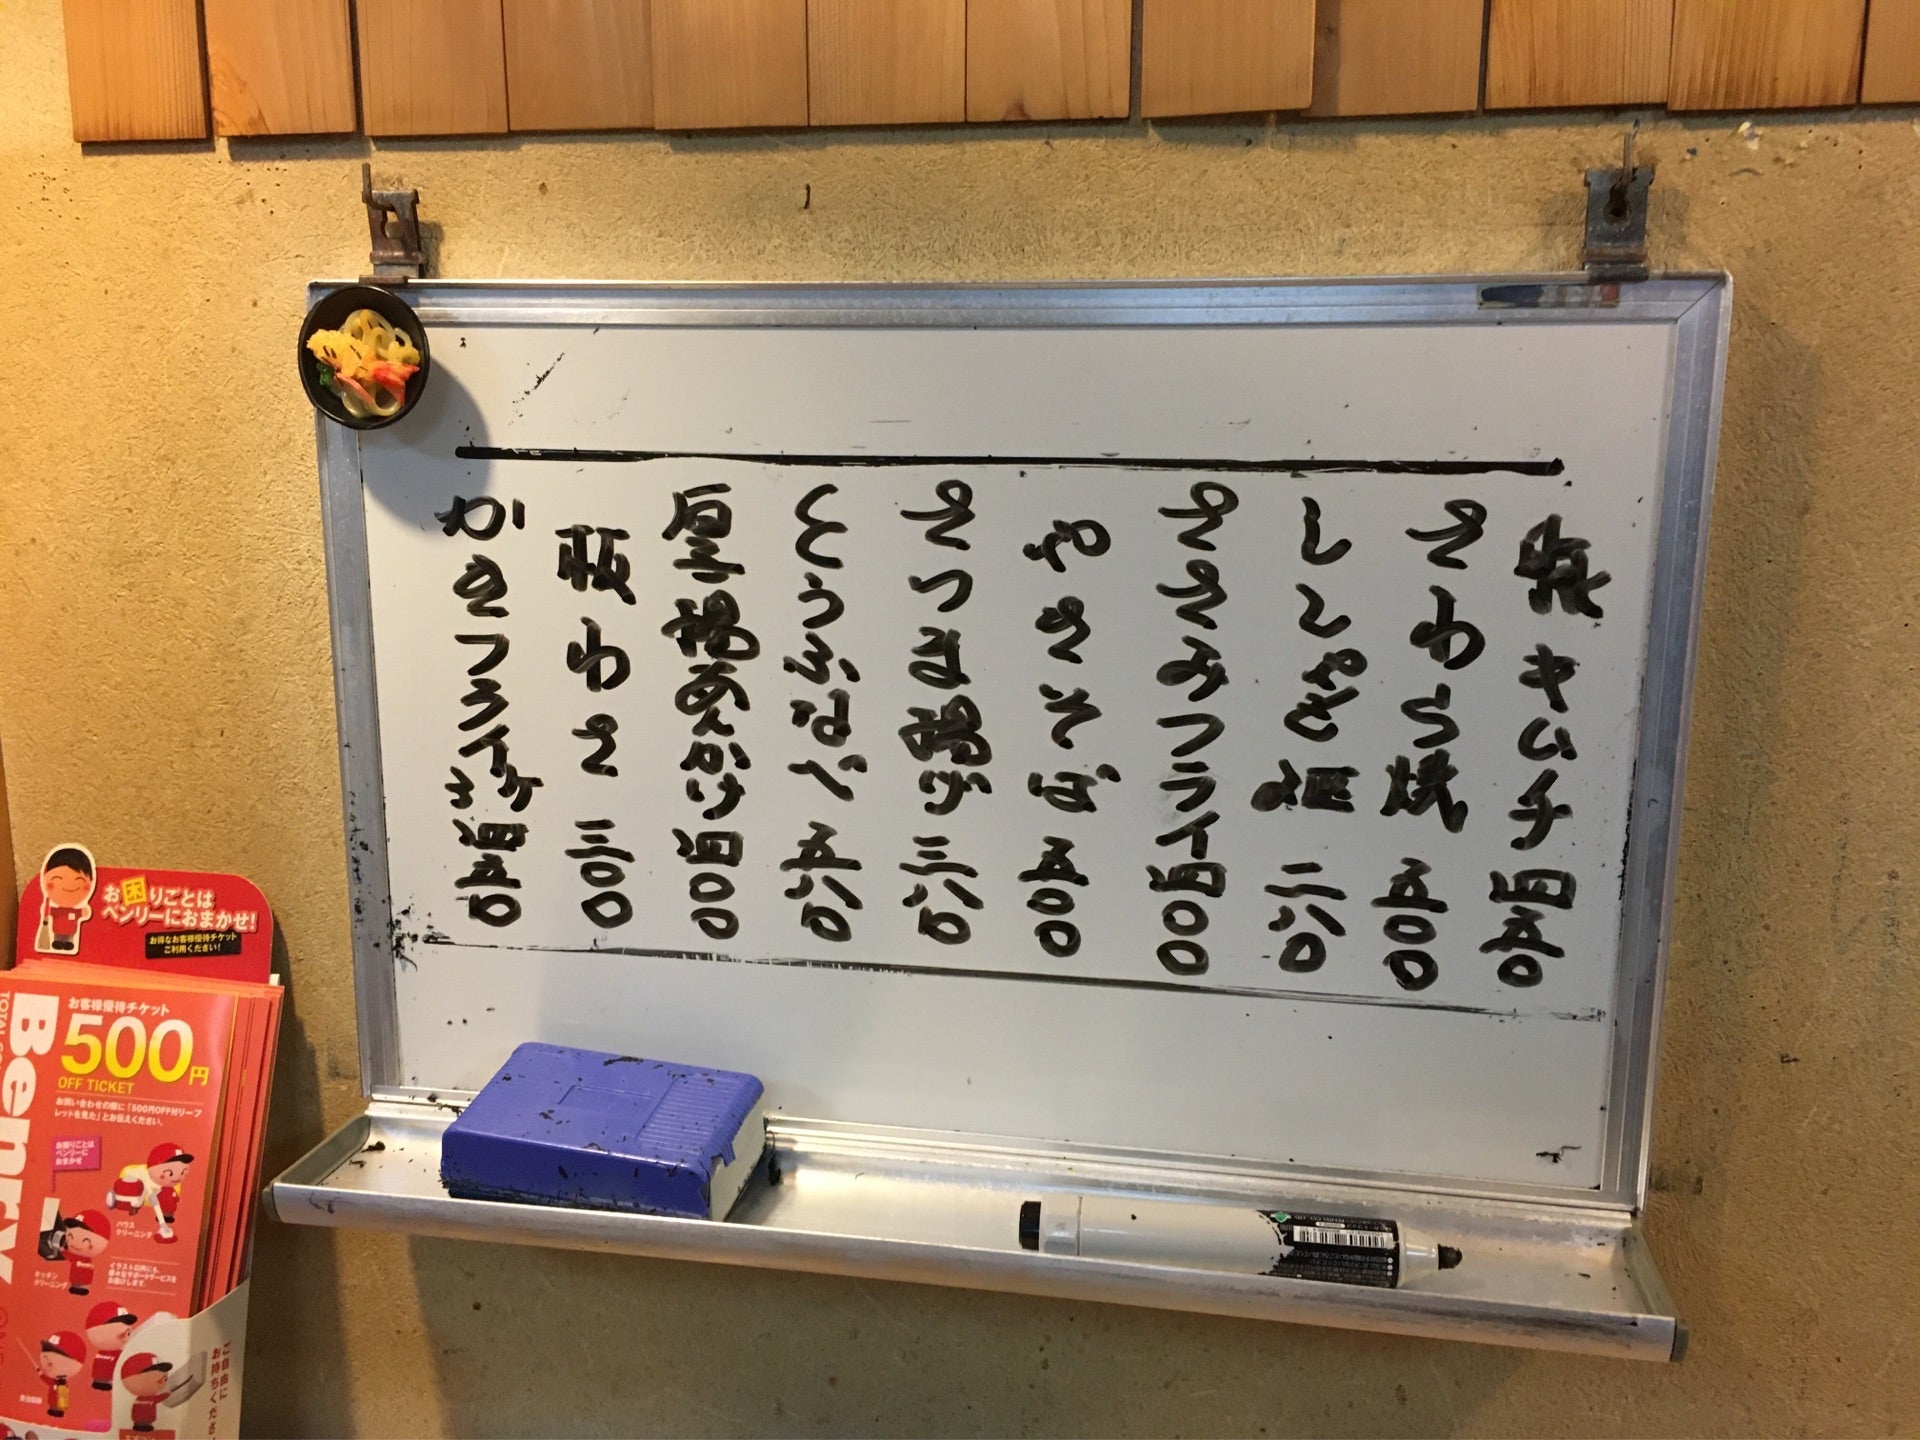 豚キムチ 四五〇
さわら焼 五〇〇
ししゃも 二匹 二八〇
ささみフライ 四〇〇
やきそば 五〇〇
さつま揚げ 三八〇
とうふなべ 五八〇
厚揚あんかけ 四〇〇
板わさ 三〇〇
かきフライ 四五〇
お困りごとは
ベンリーにおまかせ!
お得なお客様優待チケット
ご利用ください!
お客様優待チケット
500円
OFF TICKET
お問い合わせの際に「500円OFF付リーフ
レットを見た」とお伝えください。
Benry
お困りごとは
ベンリーに
おまかせ
ハウス
クリーニング
キッチン
クリーニング
イラスト以外にも、
様々なサポートサービスを
お届けします。
ご自由に
お持ちください